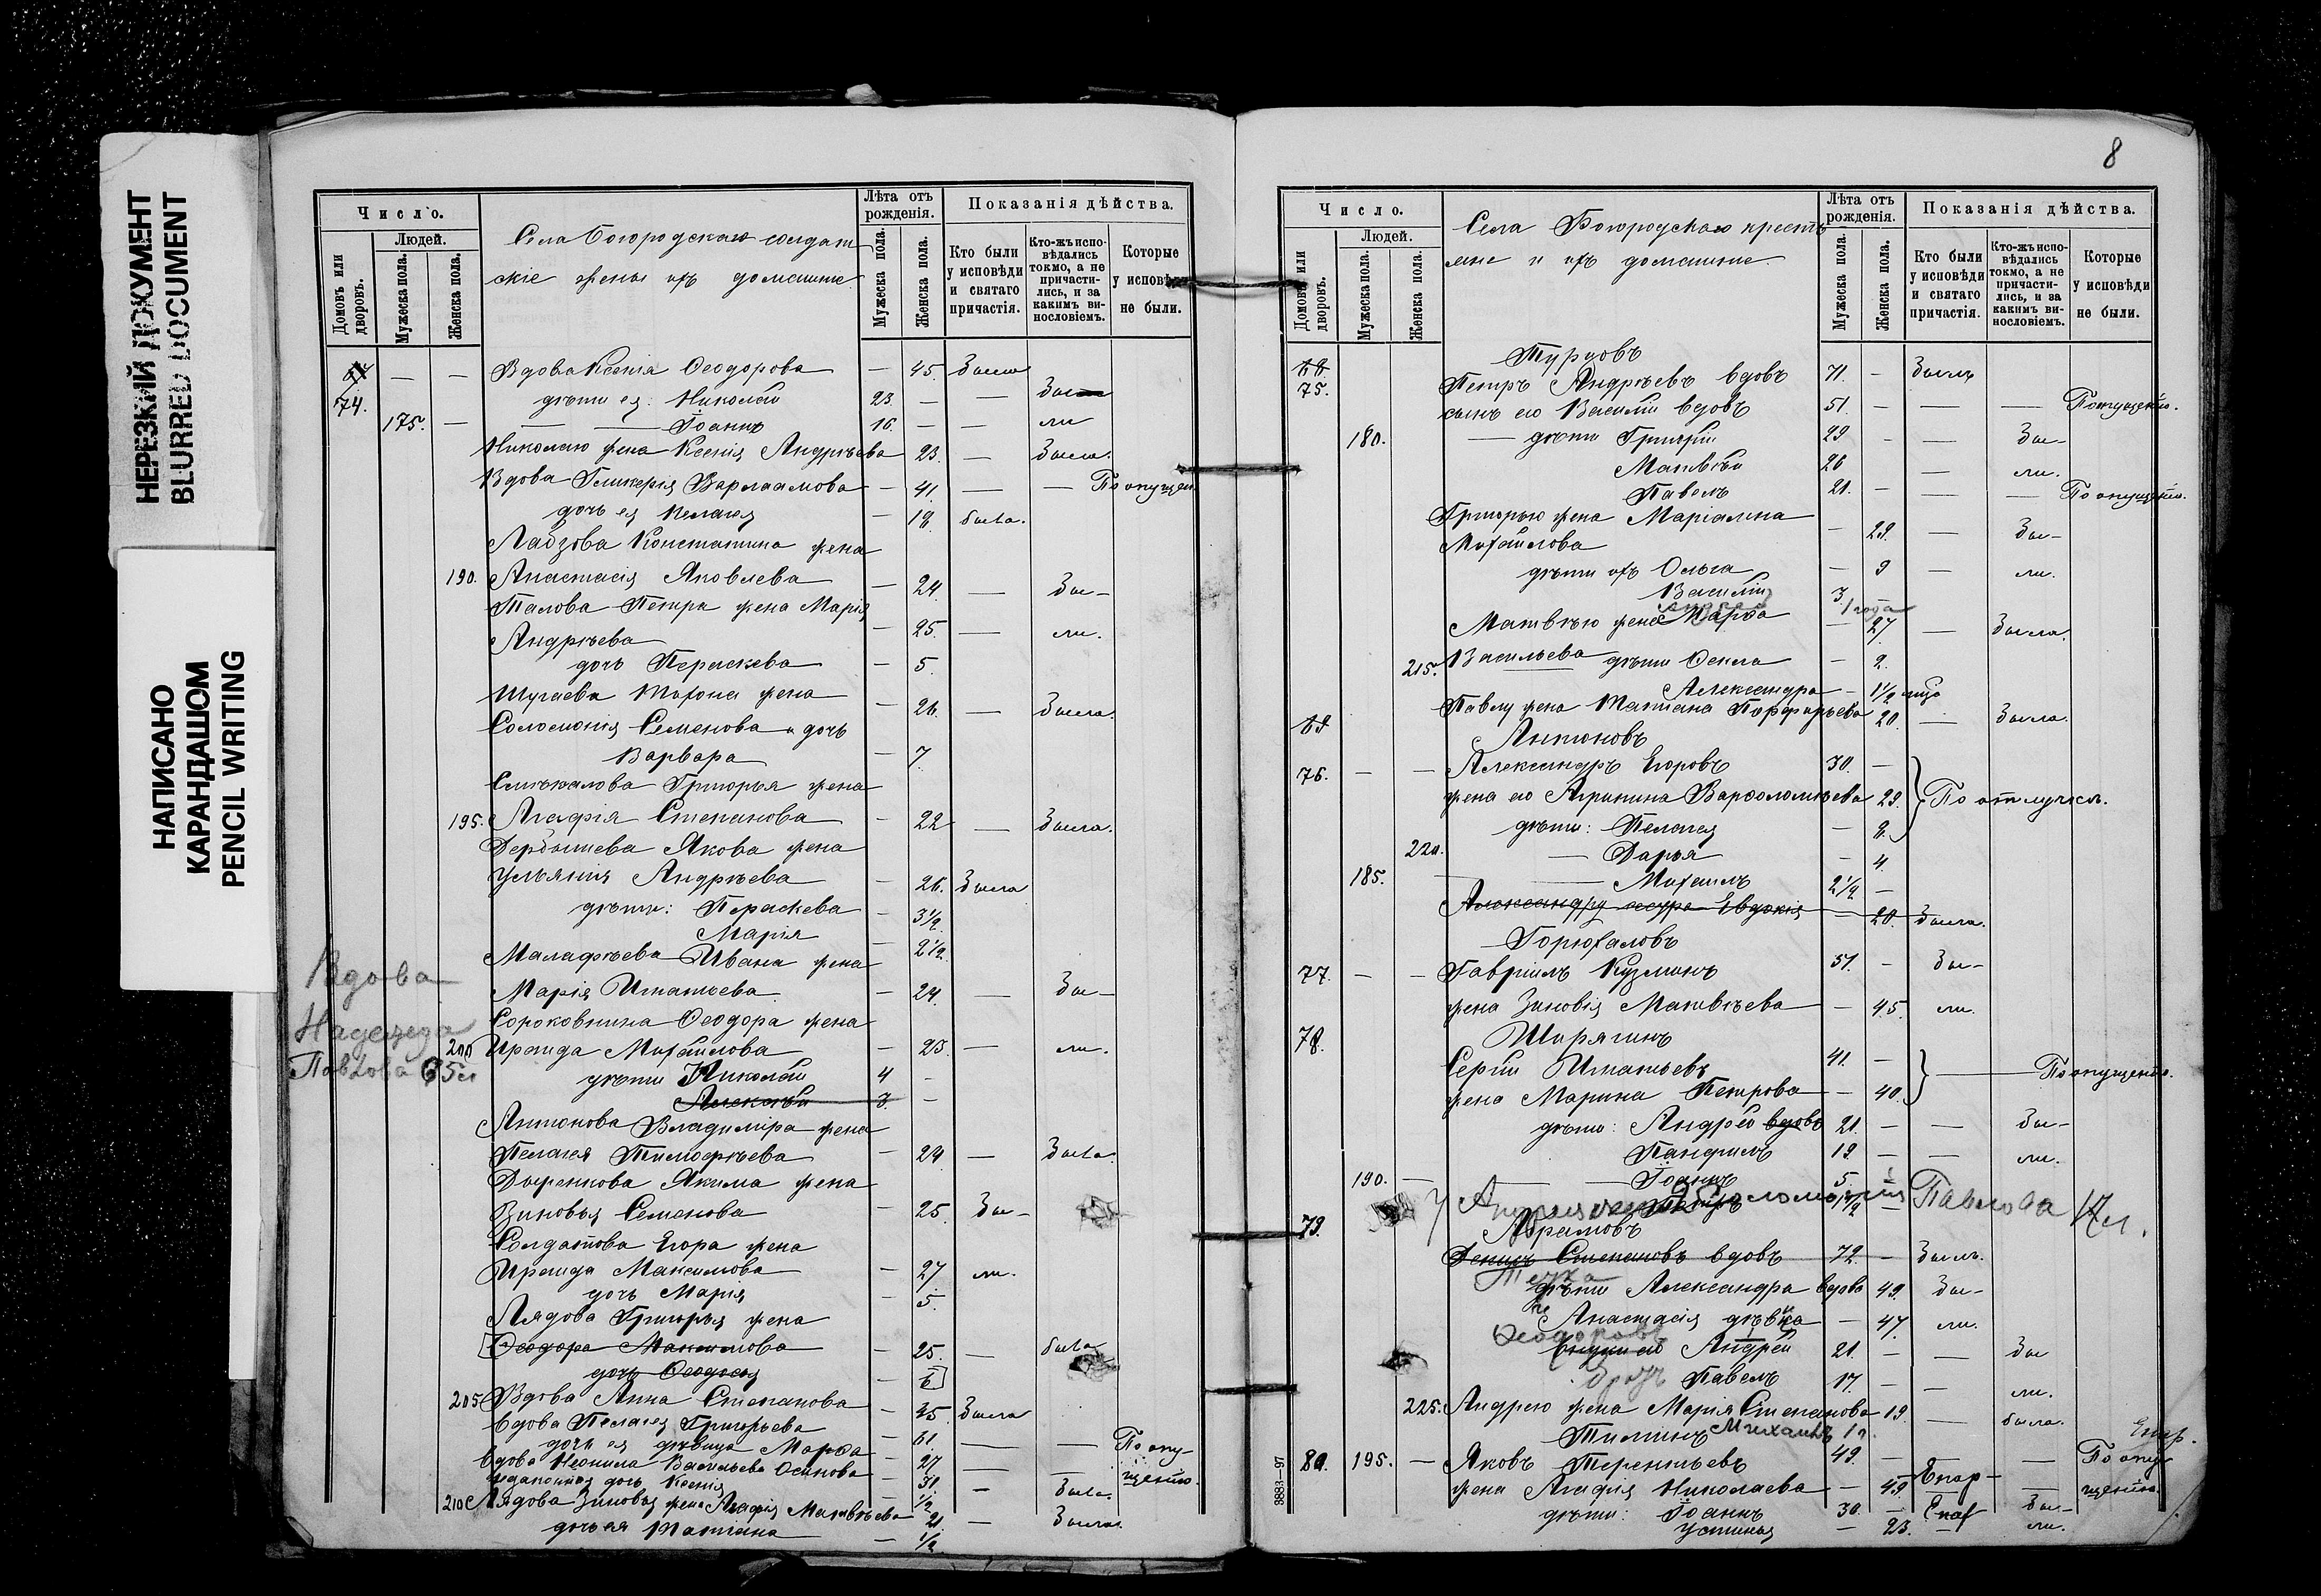 НЕРЕЗКИЙ ДОКУМЕНТ
BLURRED DOCUMENT
НАПИСАНО
КАРАНДАШОМ
PENCIL WRITING
Число.
Людей.
Домовъ или дворовъ.
Мужеска пола.
Женска пола.
Села Богородскаго солдат
скіе жены ихъ домашніе
Лѣта отъ рожденія.
Мужеска пола.
Женска пола.
Показанія дѣйства.
Кто были у исповѣди и святаго причастія.
Кто-жъ исповѣдались токмо, а не причастились, и за какимъ винословіемъ.
Которые у исповѣди не были.
Вдова Ксенія Ѳеодорова — 45. Была
74. дѣти ея: Николай 23. — — Бы
175. — Іоаннъ 16. — — ли
Николаю жена Ксенія Андрѣева 23. — Была.
Вдова Гликерія Варлаамова — 41. — — По опущен.
дочь ея Пелагея — 18. была.
Лабзова Константина жена
190. Анастасія Яковлева — 24. Бы-
Талова Петра жена Марія
Андрѣева — 25. — ли.
дочь Параскева — 5.
Шугаева Тихона жена
Соломонія Семенова и дочь — 26. — Была.
Варвара — 7.
Григорья жена
195. Агафія Степанова — 22 — Была.
Дербышева Якова жена
Ульянія Андрѣева — 26. Была
дѣти: Параскева — 3½
Марія — 2½
Малафѣева Ивана жена
Марія Игнатьева — 24. — Бы-
Сороковнина Ѳеодора жена
200 Ираида Михайлова — 23. — ли.
дѣти Николай 4 —
Алексѣй 3. —
Антонова Владиміра жена
Пелагея Тимофѣева — 24 — Была.
Якима жена
Зиновья Семенова — 25. Бы-
Солдатова Егора жена
Ираида Максимова — 27 ли.
дочь Марія — 5.
Лядова Григорья жена
Ѳеодора Максимова — 25. — была
дочь Ѳеодосья — 6
205 Вдова Анна Степанова — 35. Была
вдова Пелагея Григорьева — 61. — — По опу-
дочь ея дѣвица Марѳа — 27
вдова Неонила Васильева Осипова — 31. — Была. щенію.
дочь Ксенія — ½
210 Лядова Зиновья жена Агафія Матвѣева 21. — Была.
дочь ея Татіана — ½
Вдова
Надежда
Павлова 65 л
8
Число.
Людей.
Домовъ или дворовъ.
Мужеска пола.
Женска пола.
Села Богородскаго кресть
яне и ихъ домашніе.
Лѣта отъ рожденія.
Мужеска пола.
Женска пола.
Показанія дѣйства.
Кто были у исповѣди и святаго причастія.
Кто-жъ исповѣдались токмо, а не причастились, и за какимъ винословіемъ.
Которые у исповѣди не были.
68. Турцовъ
75. Петръ Андрѣевъ вдовъ 71. — Былъ
сынъ его Василій вдовъ 51. — — — По опущенію.
180. — дѣти Григорій 29 — — Бы-
Матвѣй 26 — ли.
Павелъ 21. — — — По опущенію.
Григорью жена Маріамна
Михайлова — 29. — Бы-
дѣти ихъ Ольга — 9 — ли.
Василій 3
1 года
Матвѣю жена Марѳа — 27 — Была.
215. Васильева дѣти Ѳекла — 2.
Александра — 1½
Павлу жена Татіана Порфирьева 20. — Была.
69 Антоновъ
76. — — Александръ Егоровъ 30. —
жена его Агрипина Варѳоломѣева 29. По отлучкѣ.
дѣти: Пелагея — 8.
220. — Дарья — 4.
185. — Михаилъ 2½ —
Александру сестра Евдокія — 20. Была.
Горюхаловъ
77. — — Гавріилъ Кузминъ 51. — Бы-
жена Зиновія Матвѣева — 45. ли.
78. Ширягинъ
Сергій Игнатьевъ 41. —
жена Марина Петрова — 40. — По опущенію.
дѣти: Андрей вдовъ 21. — — Бы-
Панфилъ 19 — — ли.
190. — Іоаннъ 5.
Петръ 1½ —
Павлова 17 л.
79. Абрамовъ
Степановъ вдовъ 72. — Былъ.
Теща
дѣти Александра вдова 49. Бы-
Анастасія дѣвка — 47. ли.
Ѳеодоровъ
внуки его Андрей 21. — — Бы
братъ Павелъ 17. — — ли.
225. Андрею жена Марія Степанова 19. — была.
Тиминъ Михаилъ 1 г.
80. 195. — Яковъ Терентьевъ 49. — — По опу-
жена Агафія Николаева — 49 — щенію.
дѣти: Іоаннъ 30. — Бы-
Устинья — 23. — ли.
3883—97